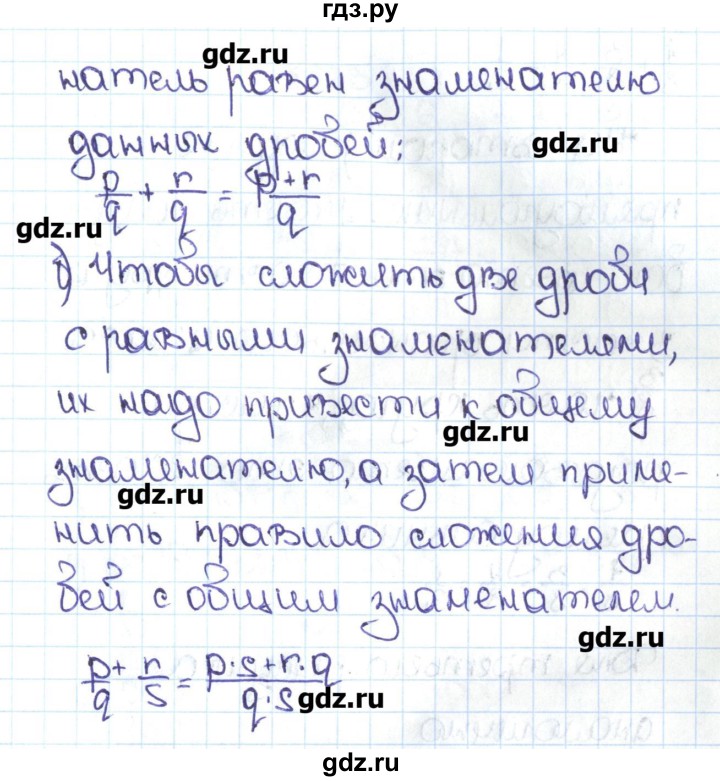 гдз.ру
gdz.ru
натель равен знаменателю
данных дробей:
gdz.ru
p/q + r/q = p+r/q
gdz.ru
б) Чтобы сложить две дроби
с равными знаменателями,
их надо привести к общему
gdz.ru
знаменателю, а затем приме-
gdz.ru
нить правило сложения дро-
бей с общим знаменателем.
gdz.ru
p/q + r/s = p·s+r·q/q·s
gdz.ru
gdz.ru